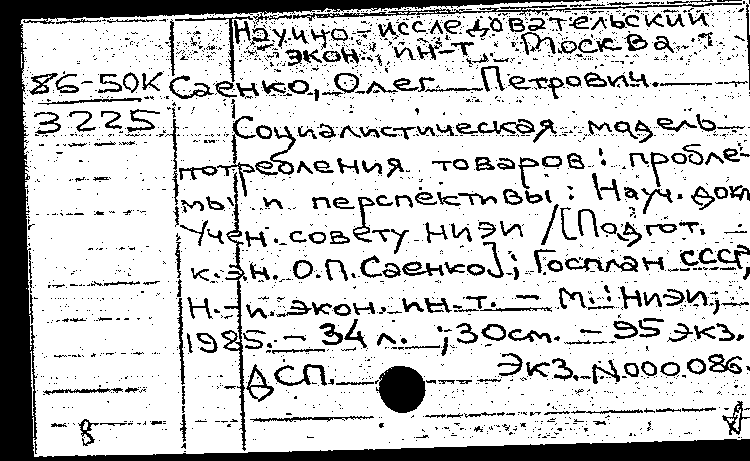 Научно-исследовательский
экон. ин-т. Москва
86-50К Саенко, Олег Петрович.
3225 Социалистическая модель
потребления товаров: пробле-
мы и перспективы: Науч. док
Учен. совету НИЭИ /[Подгот.
к.э.н. О.П.Саенко]; Госплан СССР,
Н.-и. экон. ин-т. - М.: НИЭИ,
1985. - 34 л. ; 30см. - 95 экз.
ДСП. Экз. N000.086.
8